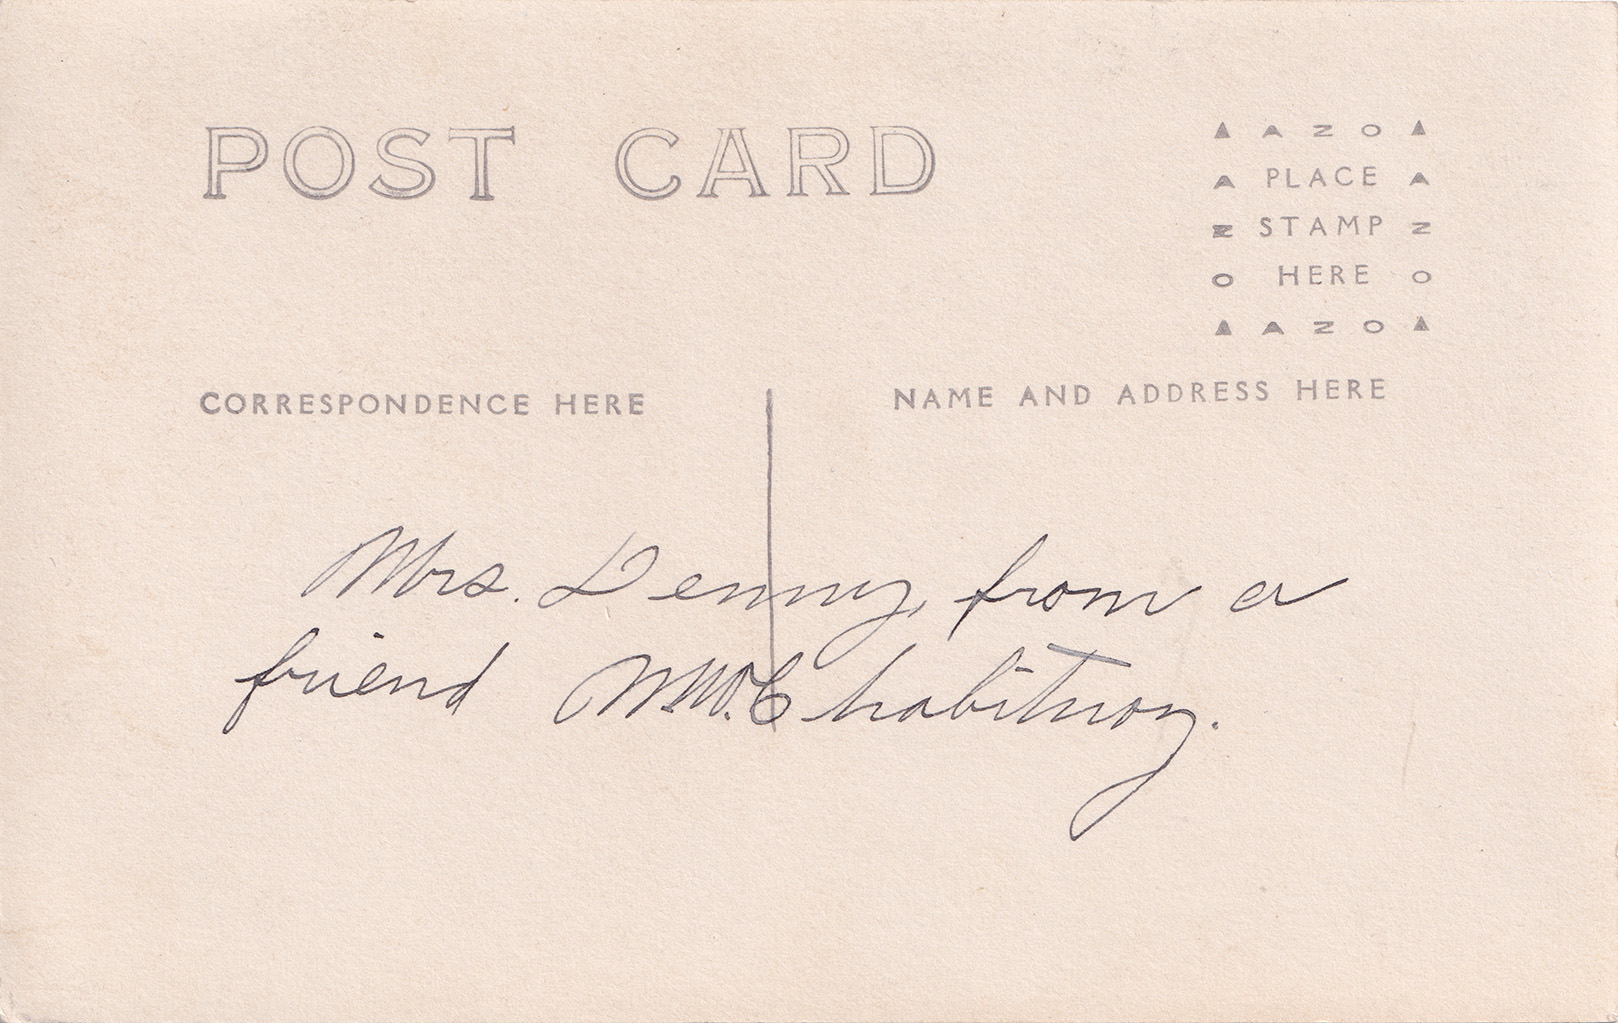 POST CARD
▲ A Z O ▲
A PLACE A
Z STAMP Z
O HERE O
▲ A Z O ▲
CORRESPONDENCE HERE
NAME AND ADDRESS HERE
Mrs. Denny, from a
friend Chabitnoy.